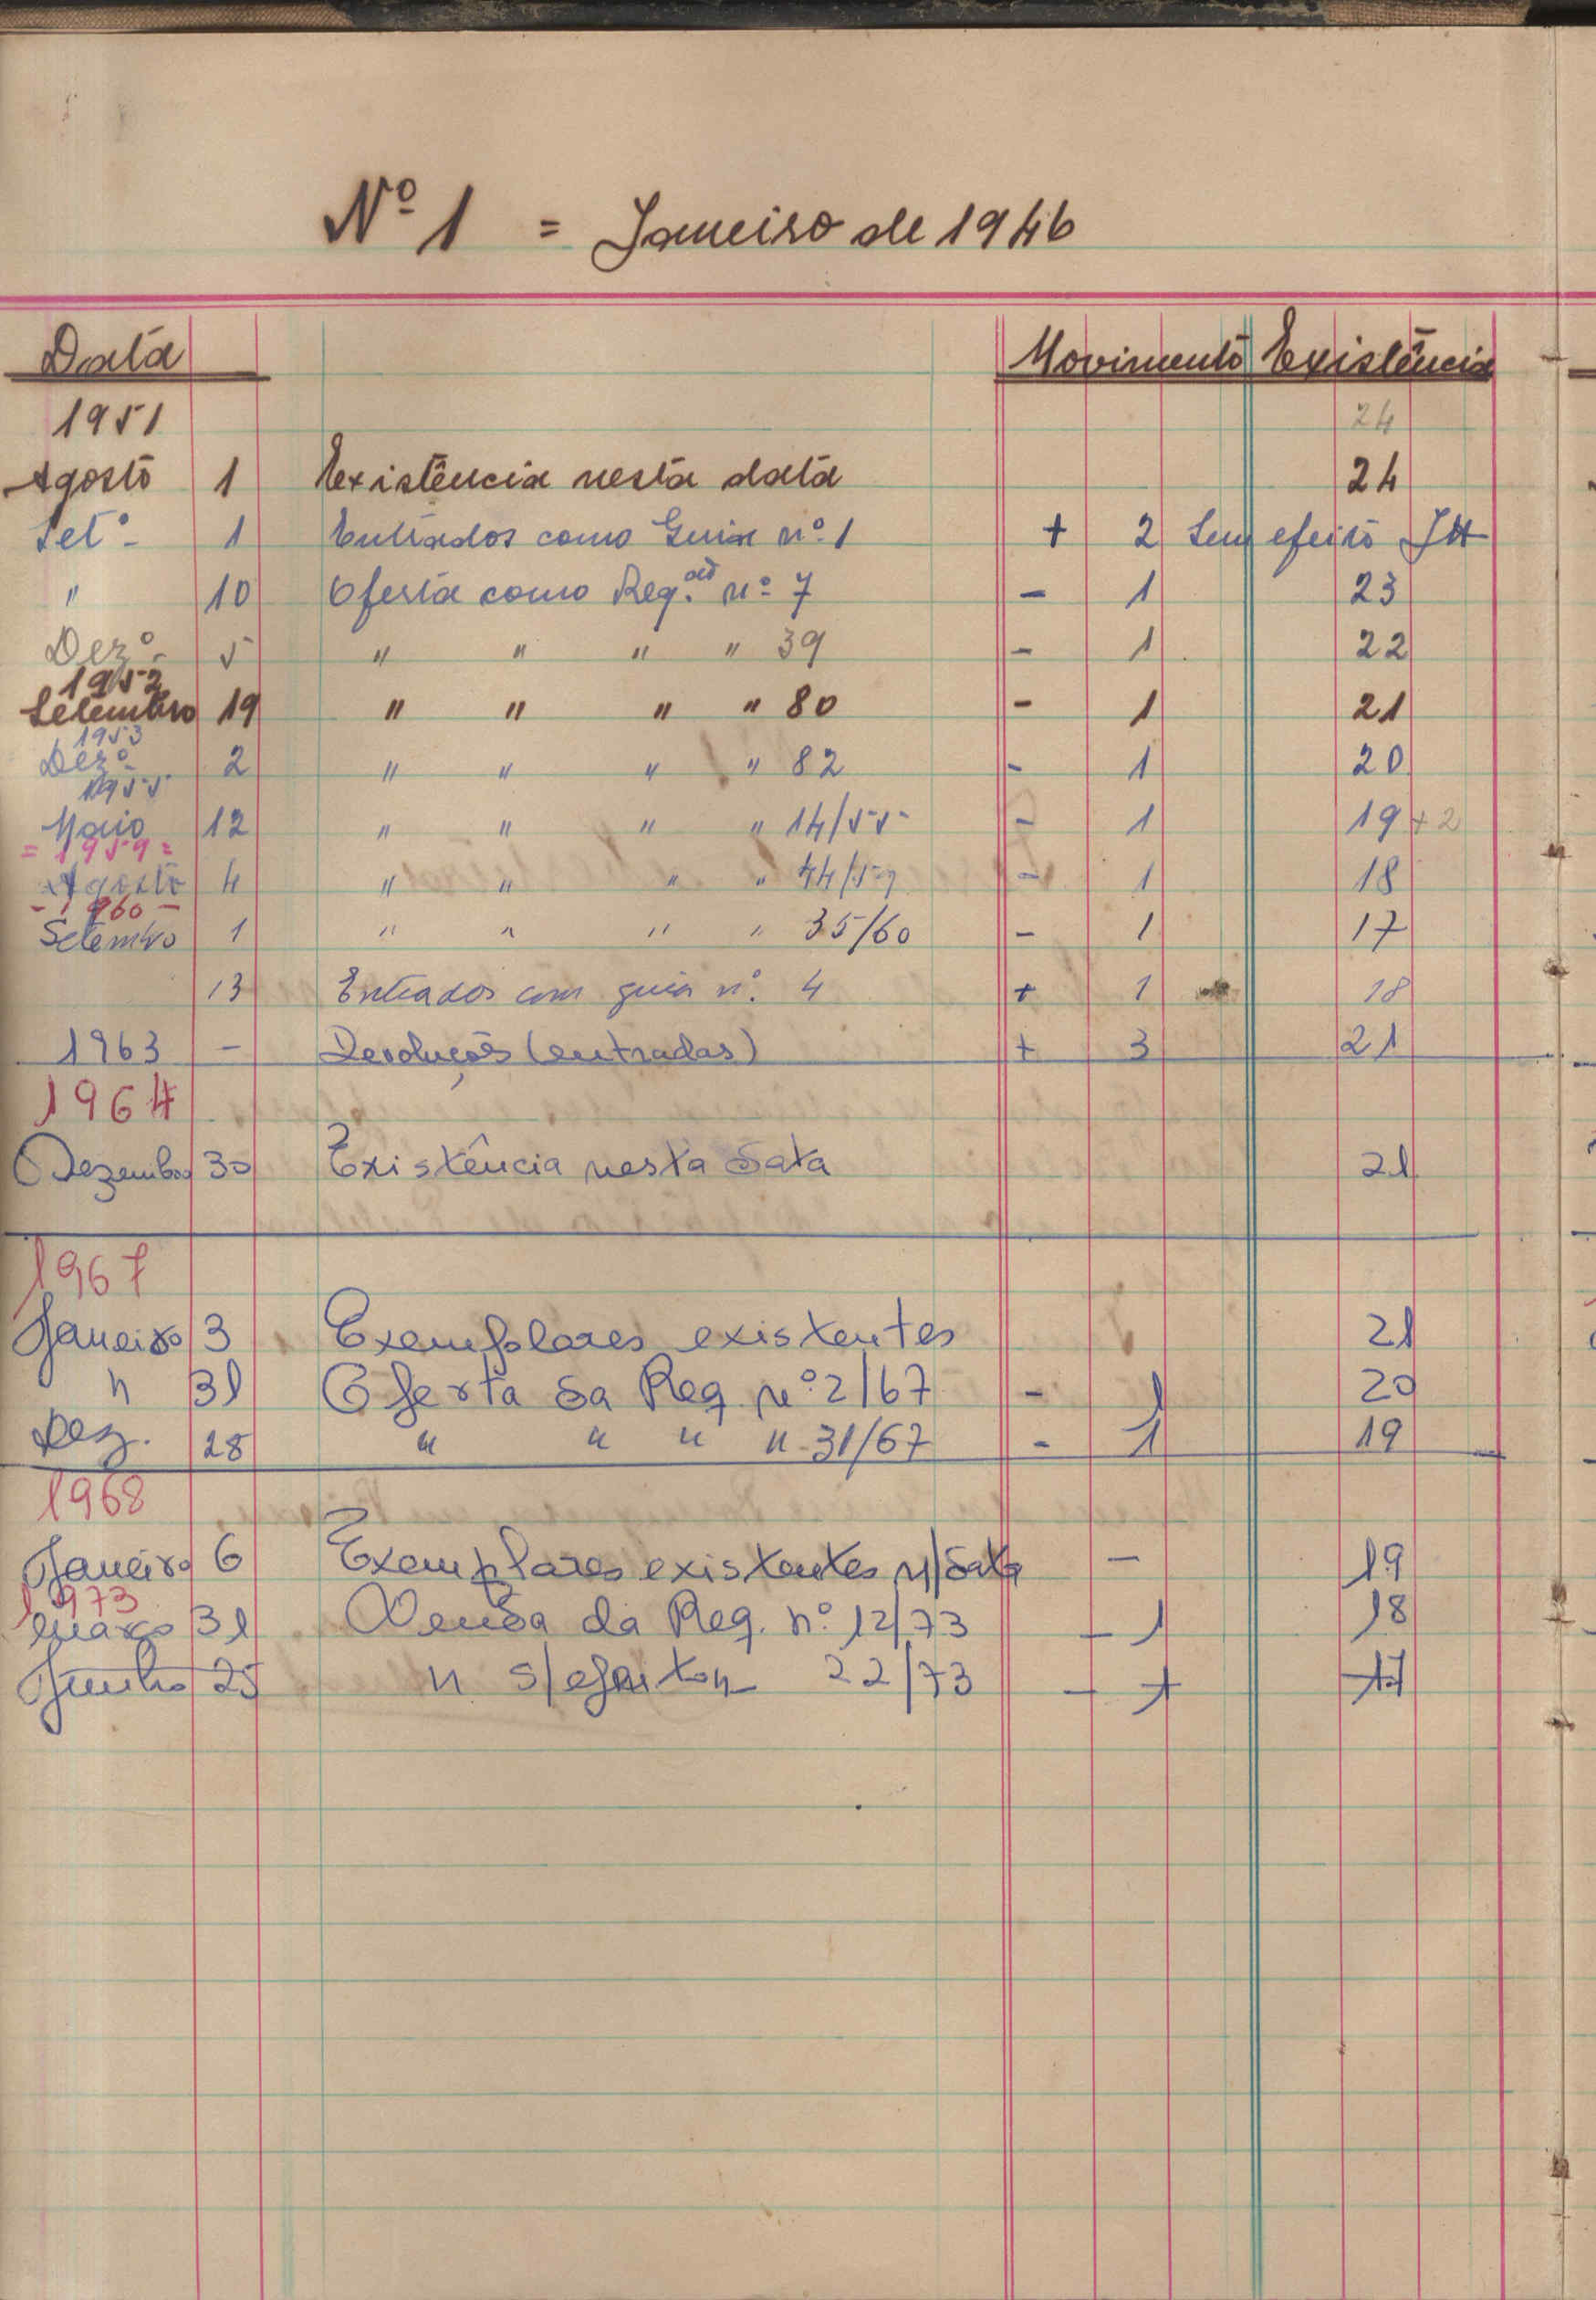 Nº 1 = Janeiro de 1946
Data Movimento Existência
1951 24
Agosto 1 Existência nesta data 24
Set.º 1 Entrados como Guia nº 1 + 2 Sem efeito JH
" 10 Oferta como Reg. nº 7 - 1 23
Dez.º 5 " " " " 39 - 1 22
1952
Setembro 19 " " " " 80 - 1 21
1953
Dez.º 2 " " " " 82 - 1 20
1955
Maio 12 " " " " 14/55 - 1 19 + 2
= 1959 =
Agosto 4 " " " " 44/59 - 1 18
- 1960 -
Setembro 1 " " " " 35/60 - 1 17
13 Entrados com guia nº. 4 + 1 18
1963 - Devoluções (entradas) + 3 21
1964
Dezembro 30 Existência nesta data 21
1967
Janeiro 3 Exemplares existentes 21
" 31 Oferta da Req. nº 2/67 - 1 20
Dez. 28 " " " " 31/67 - 1 19
1968
Janeiro 6 Exemplares existentes n/data - 19
1973
Março 31 Venda da Req. nº 12/73 - 1 18
Junho 25 " s/efeito " 22/73 - 1 17